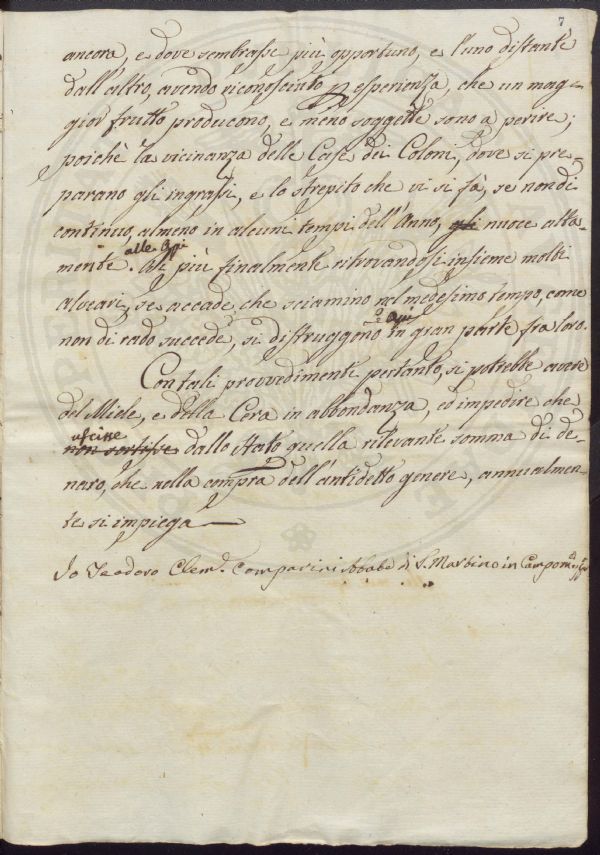 7
ancora, e dove sembrasse più opportuno, e l'uno distante
dall'altro, avendo riconosciuto p esperienza, che un mag-
gior frutto producono, e meno soggette sono a perire;
poichè la vicinanza delle Case dei Coloni, dove si pre-
parano gli ingrassi, e lo strepito che vi si fà, se non di
continuo, almeno in alcuni tempi dell'Anno, gli nuoce alta-
alle Api
mente. Di più finalmente ritrovandosi insieme molti
alveari, se accade, che sciamino nel medesimo tempo, come
Api
non di rado succede, si distruggono in gran parte fra loro.
Con tali provvedimenti pertanto, si potrebbe avere
del Miele, e della Cera in abbondanza, ed impedire che
uscisse
non sortisse dallo Stato quella rilevante somma di de-
naro, che nella compra dell'antidetto genere, annualmen-
te si impiega
Io Teodoro Clem. Comparini Abbate di S. Martino in Campo